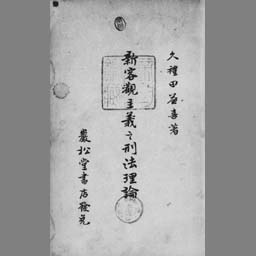 久禮田益喜著
新客觀主義之刑法理論
巖松堂書店發兌